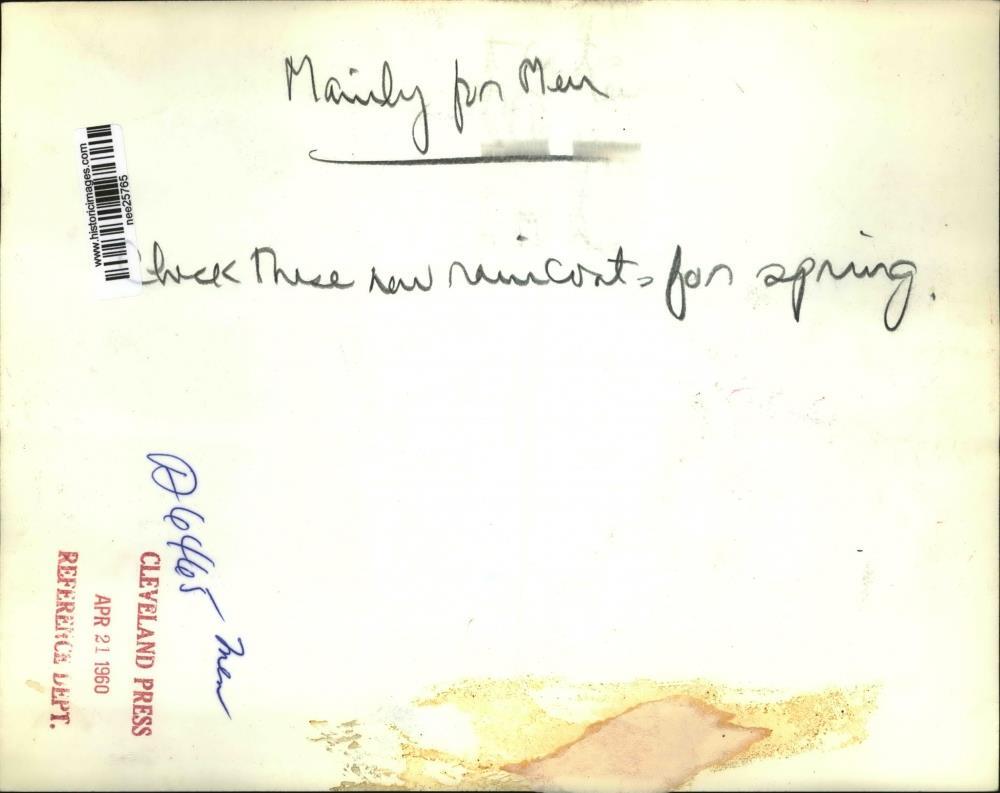 Mainly for Men
Check these new raincoats for spring.
www.historicimages.com
nee25765
D 6465 Men
CLEVELAND PRESS
APR 21 1960
REFERENCE DEPT.